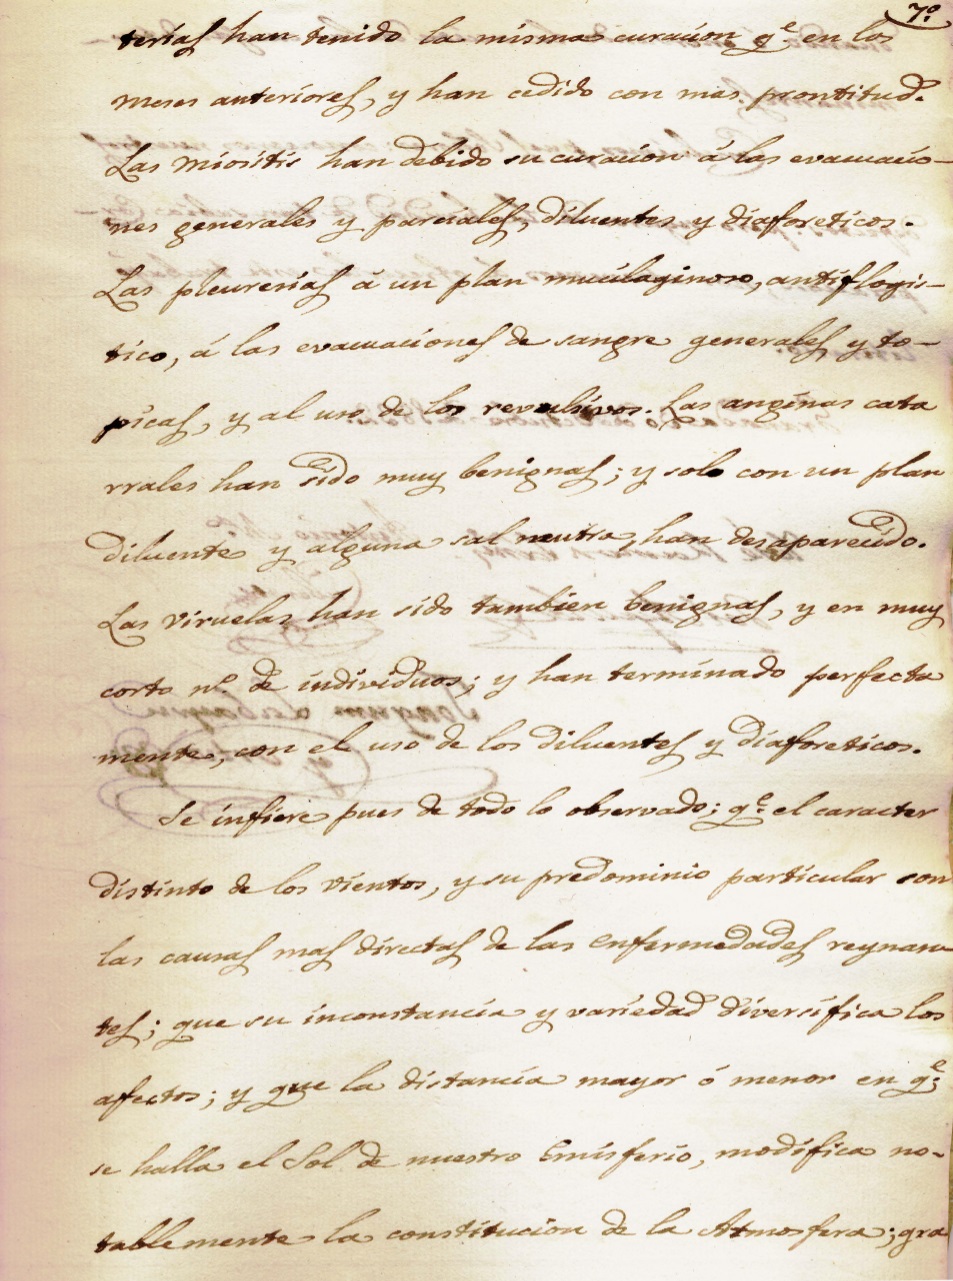 7º.
terias han tenido la misma curacion qᵉ. en los
meses anteriores, y han cedido con mas prontitud.
Las Miositis han debido su curacion á las evacuacio-
nes generales y parciales, diluentes y diaforeticos.
Las pleuresias á un plan mucilaginoso, antiflogis-
tico, á las evacuaciones de sangre generales y to-
picas, y al uso de los revulsivos. Las anginas cata
rrales han sido muy benignas; y solo con un plan
diluente y alguna sal neutra, han desaparecido.
Las viruelas han sido tambien benignas, y en muy
corto nº. de individuos; y han terminado perfecta
mente, con el uso de los diluentes y diaforeticos.
Se infiere pues de todo lo observado; qᵉ. el caracter
distinto de los vientos, y su predominio particular son
las causas mas directas de las enfermedades reynan
tes; que su inconstancia y variedad diversifica los
afectos; y que la distancia mayor ó menor en qᵉ.
se halla el Sol de nuestro Emisferio, modifica no-
tablemente la constitucion de la Atmosfera; gra